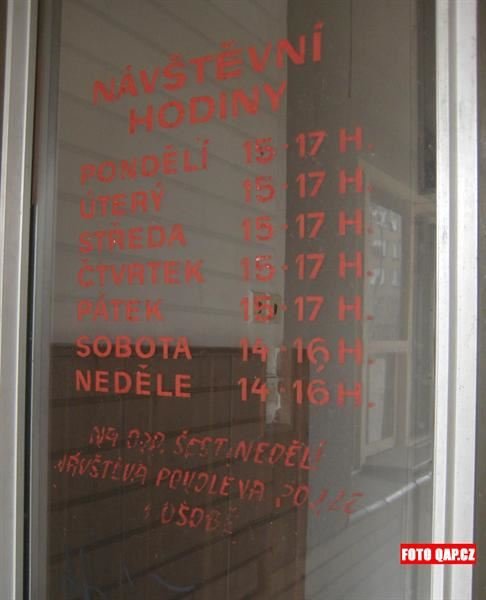 NÁVŠTĚVNÍ
HODINY
PONDĚLÍ 15-17 H.
ÚTERÝ 15-17 H.
STŘEDA 15-17 H.
ČTVRTEK 15-17 H.
PÁTEK 15-17 H.
SOBOTA 14-16 H.
NEDĚLE 14-16 H.
NA ODD. ŠESTINEDĚLÍ
NÁVŠTĚVA POVOLENA POUZE
1 OSOBĚ
FOTO QAP.CZ